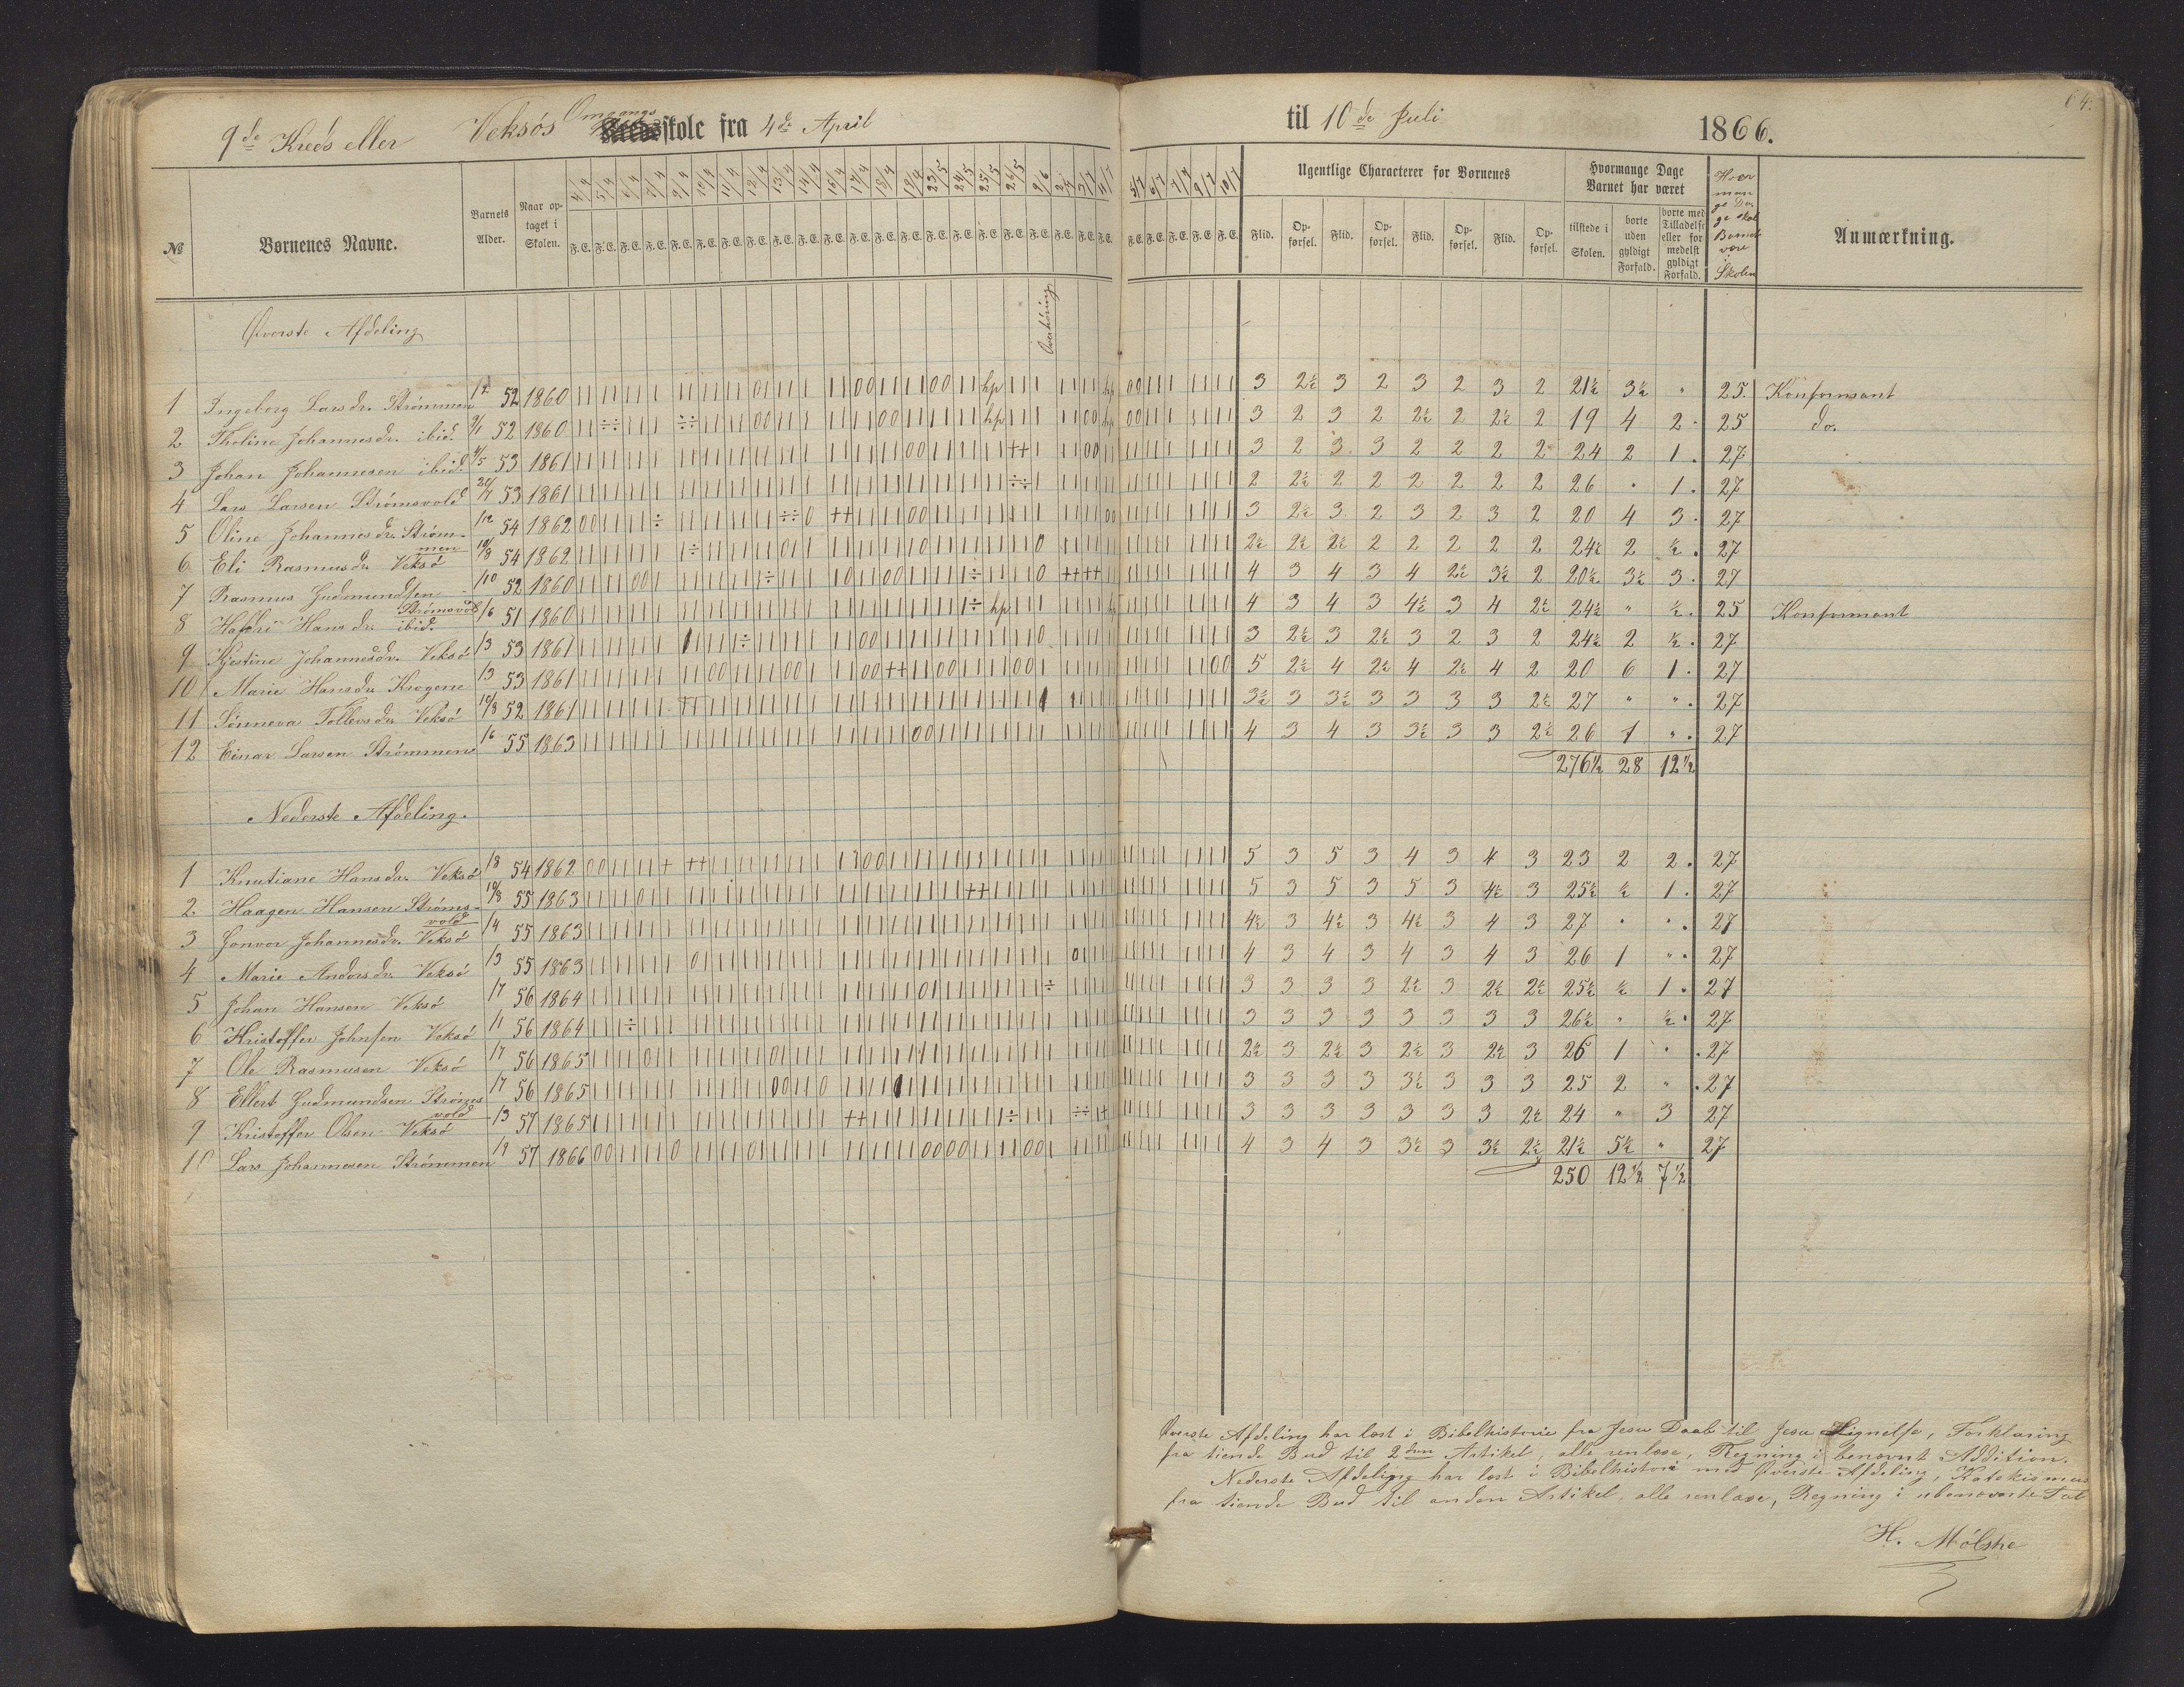 64.
9de Kreds eller Veksøs Omgangsskole fra 4de April til 10de Juli 1866.
№ Børnenes Navne. Barnets Alder. Naar optaget i Skolen. Ugentlige Characterer for Børnenes Hvormange Dage Barnet har været Hvor mange Dage skal Barnet være i Skolen Anmærkning.
4/4 5/4 6/4 7/4 9/4 10/4 11/4 12/4 13/4 14/4 16/4 17/4 18/4 19/4 23/5 24/5 25/5 26/5 9/6 2/7 3/7 4/7 5/7 6/7 7/7 9/7 10/7
F. E. F. E. F. E. F. E. F. E. F. E. F. E. F. E. F. E. F. E. F. E. F. E. F. E. F. E. F. E. F. E. F. E. F. E. F. E. F. E. F. E. F. E. F. E. F. E. F. E. F. E. F. E.
Flid. Opførsel. Flid. Opførsel. Flid. Opførsel. Flid. Opførsel. tilstede i Skolen. borte uden gyldigt Forfald. borte med Tilladelse eller formedelst gyldigt Forfald.
Øverste Afdeling
Overhøring
1 Ingeborg Larsdr. Strømmen 12 52 1860 3 2½ 3 2 3 2 3 2 21½ 3½ " 25. Konfirmant
2 Tholine Johannesdr. ibid. 52 1860 3 2 3 2 2½ 2 2½ 2 19 4 2. 25 do.
3 Johan Johannesen ibid. 4/5 53 1861 3 2 3. 3 2 2 2 2 24 2 1. 27
4 Lars Larsen Strømsvold 20/7 53 1861 2 2½ 2 2 2 2 2 2 26 " 1. 27
5 Oline Johannesdr. Strømmen 12 54 1862 3 2½ 3. 2 3 2 3 2 20 4 3. 27
6 Eli Rasmusdr. Veksø 10/8 54 1862 2½ 2½ 2½ 2 2 2 2 2 24½ 2 ½. 27
7 Rasmus Gudmundsen Strømsvold /10 52 1860 4 3 4 3 4 2½ 3½ 2 20½ 3½ 3. 27
8 Hansdr. ibid. /6 51 1860 4 3 4 3 4½ 3 4 2½ 24½ " ½. 25 Konfirmant
9 Kjestine Johannesdr. Veksø /3 53 1861 3 2½ 3 2½ 3 2 3 2 24½ 2 ½. 27
10 Marie Hansdr. Krogene /3 53 1861 5 2½ 4 2½ 4 2½ 4 2 20 6 1. 27
11 Sønneva Tollevsdr. Veksø 10/8 52 1861 3½ 3 3½ 3 3 3 3 2½ 27 " ". 27
12 Einar Larsen Strømmen /6 55 1863 4 3 4 3 3½ 3 3 2½ 26 1 ". 27
276½ 28 12½
Nederste Afdeling.
1 Knutiane Hansdr. Veksø /8 54 1862 5 3 5 3 4 3 4 3 23 2 2. 27
2. Haagen Hansen Strømsvold 18/8 55 1863 5 3 5 3 5 3 4½ 3 25½ ½ 1. 27
3 Gonvor Johannesdr. Veksø /4 55 1863 4½ 3 4½ 3 4½ 3 4 3 27 " ". 27
4 Marie Andersdr. Veksø /3 55 1863 4 3 4 3 4 3 4 3 26 1 ". 27
5 Johan Hansen Veksø /7 56 1864 3 3 3 3 2½ 3 2½ 2½ 25½ ½ 1. 27
6 Kristoffer Johnsen Veksø /11 56 1864 3 3 3 3 3 3 3 3 26½ " ½. 27
7 Ole Rasmusen Veksø /7 56 1865 2½ 3 2½ 3 2½ 3 2½ 3 26 1 " .27
8 Ellert Gudmundsen Strømsvold /7 56 1865 3 3 3 3 3½ 3 3 3 25 2 " .27
9 Kristoffer Olsen Veksø /3 57 1865 3 3 3 3 3 3 3 2½ 24 " 3 27
10 Lars Johannesen Strømmen /9 57 1866 4 3 4 3 3½ 3 3½ 2½ 21½ 5½ " 27
250 12½ 7½
Øverste Afdeling har læst i Bibelhistorie fra Jesu Daab til Jesu Lignelse, Forklaring
fra tiende Bud til 2den Artikel, alle renlæse, Regning i benævnt Addition.
Nederste Afdeling har læst i Bibelhistorie med Øverste Afdeling, Katekismus
fra tiende Bud til anden Artikel, alle renlæse, Regning i ubenævnte Tal
H. Mølske